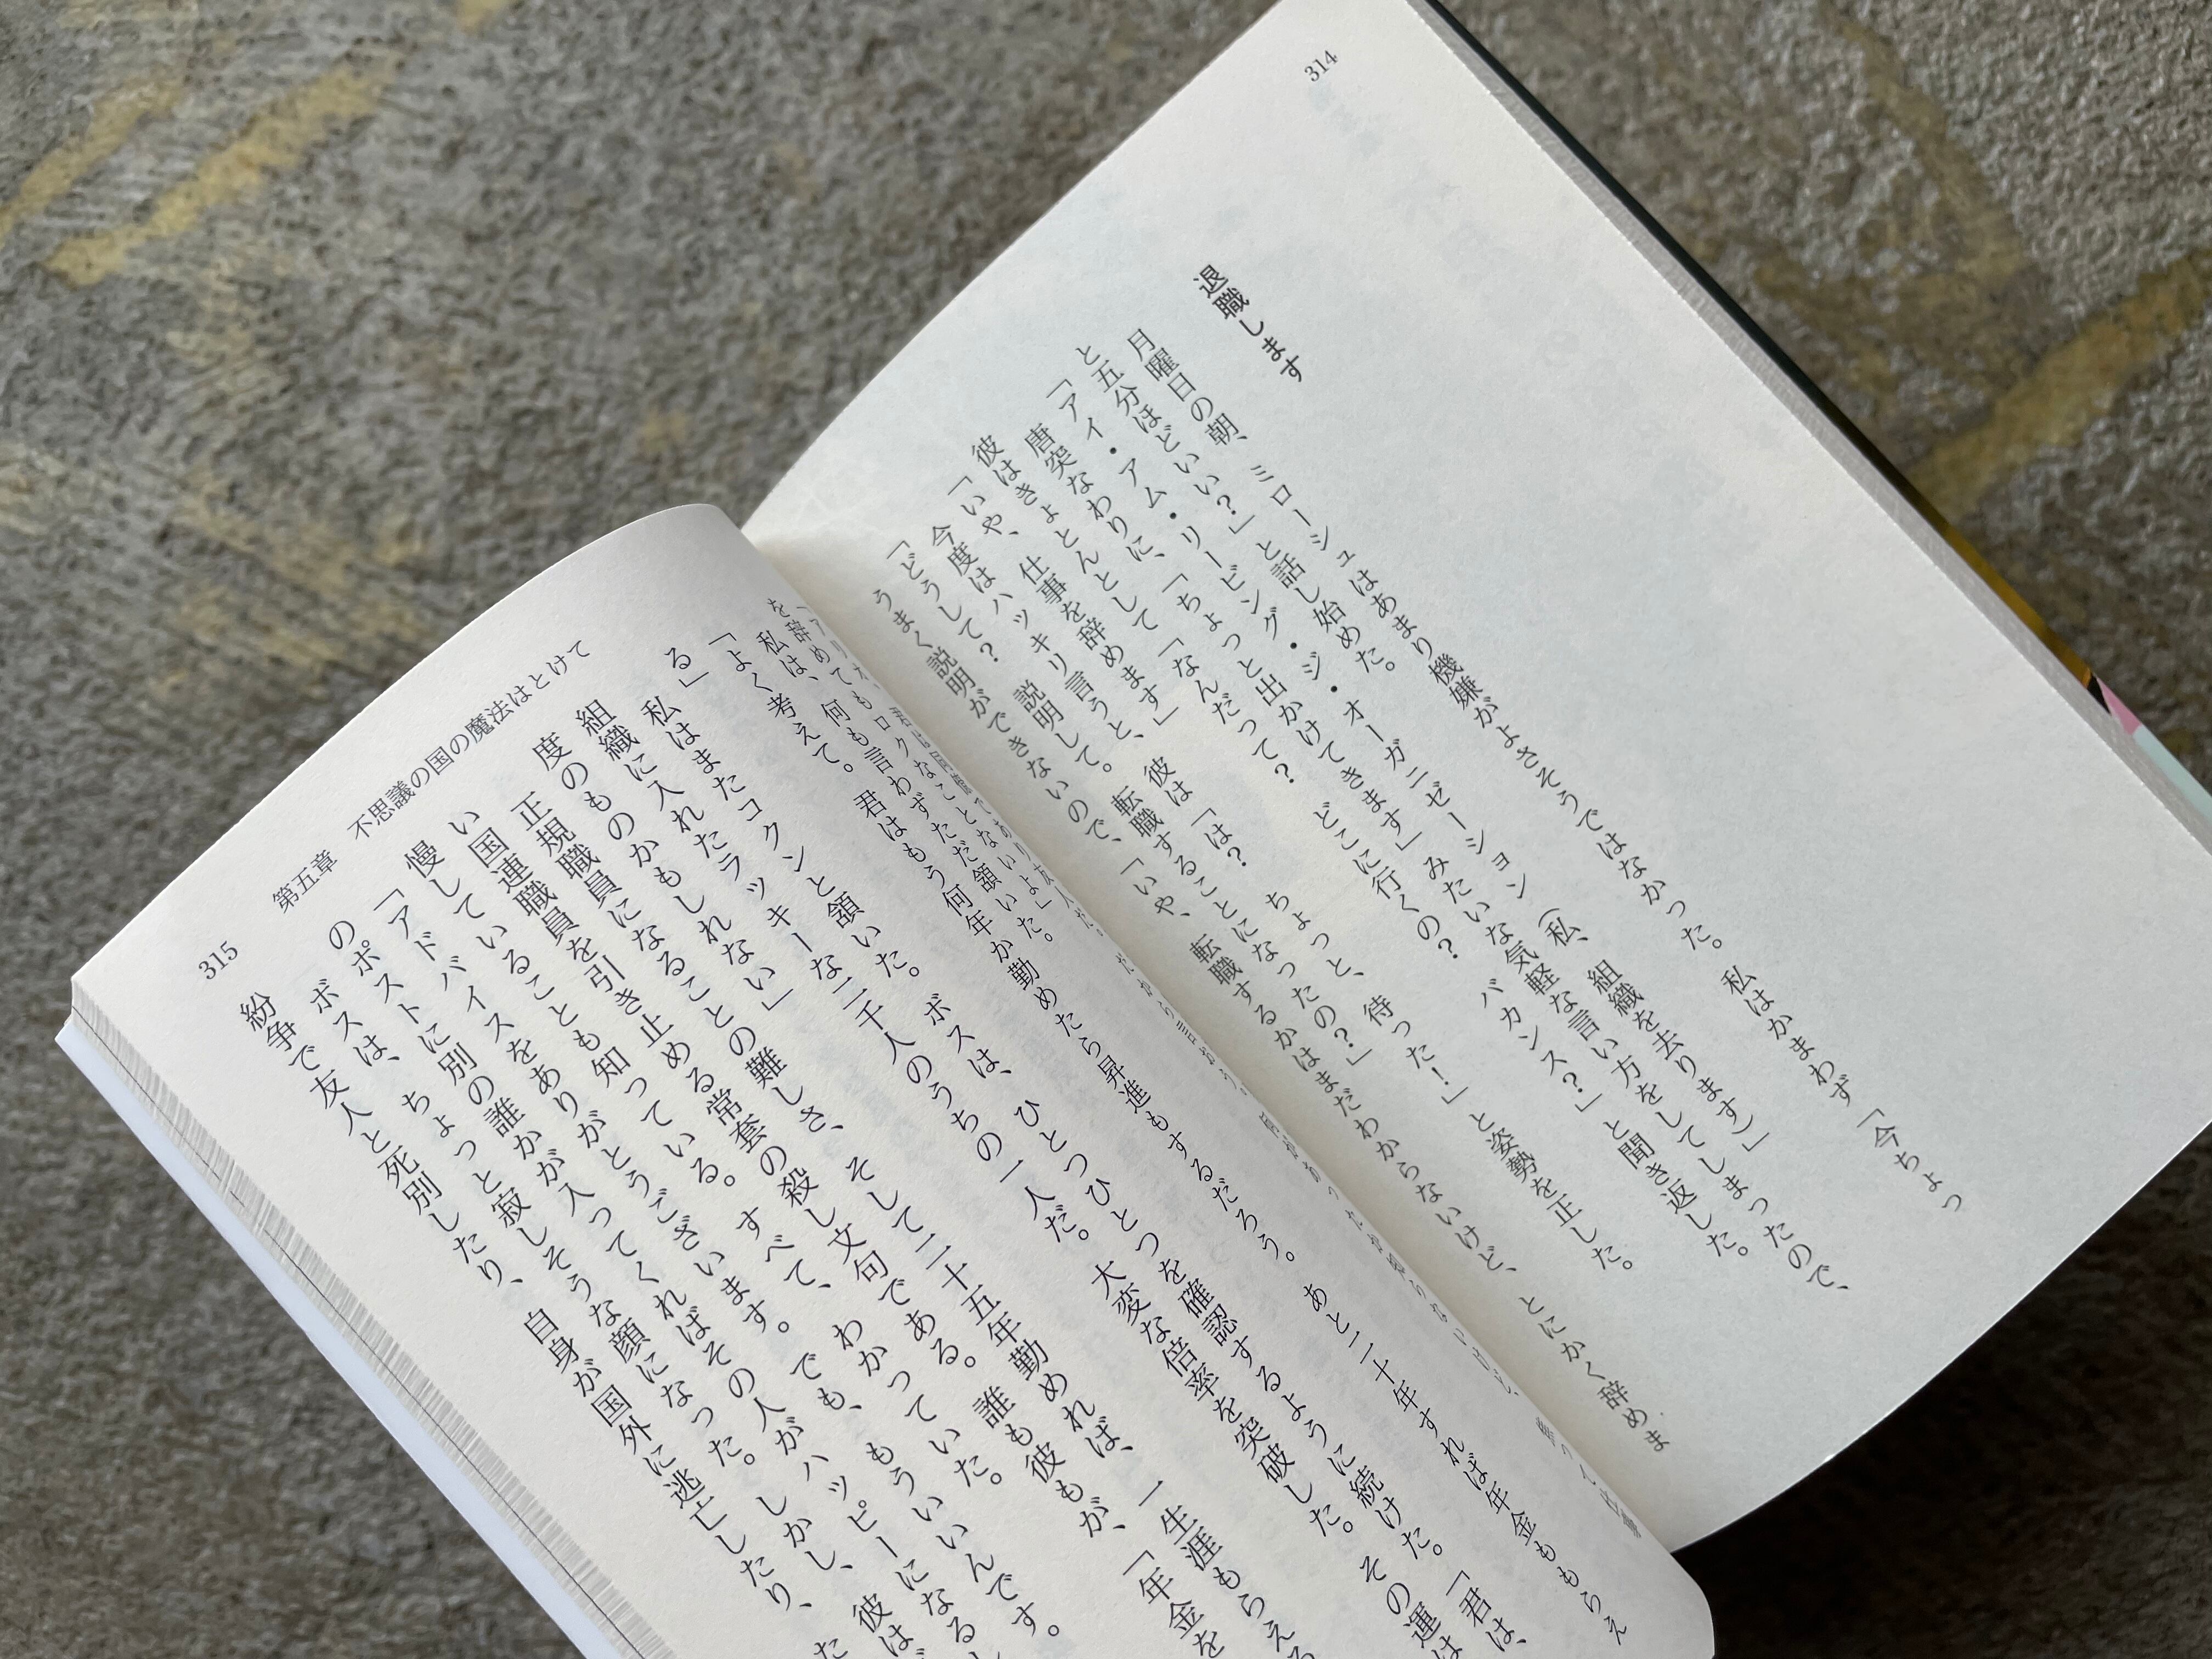 314
退職します
月曜日の朝、ミローシュはあまり機嫌がよさそうではなかった。私はかまわず「今ちょっ
と五分ほどいい？」と話し始めた。
「アイ・アム・リービング・ジ・オーガニゼーション（私、組織を去ります）」
唐突なわりに、「ちょっと出かけてきます」みたいな気軽な言い方をしてしまったので、
彼はきょとんとして「なんだって？　どこに行くの？　バカンス？」と聞き返した。
「いや、仕事を辞めます」
今度はハッキリ言うと、彼は「は？　ちょっと、待った！」と姿勢を正した。
「どうして？　説明して。転職することになったの？」
うまく説明ができないので、「いや、転職するかはまだわからないけど、とにかく辞めま
を辞めてもロクなことないよ」
私は、何も言わずただ頷いた。
「よく考えて。君はもう何年か勤めたら昇進もするだろう。あと二十年すれば年金ももらえ
る」
私はまたコクンと頷いた。ボスは、ひとつひとつを確認するように続けた。「君は、
組織に入れたラッキーな二千人のうちの一人だ。大変な倍率を突破した。その運は
度のものかもしれない」
正規職員になることの難しさ、そして二十五年勤めれば、一生涯もらえる
い国連職員を引き止める常套の殺し文句である。誰も彼もが、「年金を
慢していることも知っている。すべて、わかっていた。
「アドバイスをありがとうございます。でも、もういいんです。
のポストに別の誰かが入ってくればその人がハッピーになるし
ボスは、ちょっと寂しそうな顔になった。しかし、彼は
紛争で友人と死別したり、自身が国外に逃亡したり、た
第五章　不思議の国の魔法はとけて
315